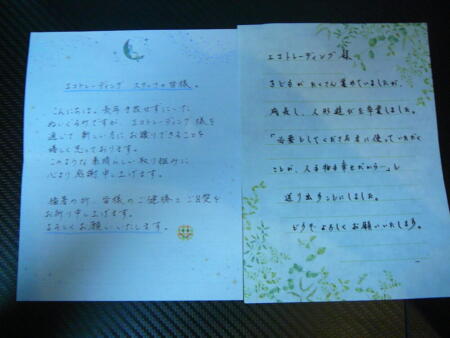 エコトレーディング スタッフの皆様。
こんにちは。長年手放せずにいた
ぬいぐるみですが、エコトレーディング様を
通じて新しい方にお譲りできることを
嬉しく思っております。
このような素晴らしい取り組みに
心より感謝申し上げます。
猛暑の折、皆様のご健勝とご多幸を
お祈り申し上げます。
よろしくお願いいたします。
エコトレーディング 様
子どもが たくさん集めていましたが、
成長し、人形遊びを卒業しました。
「必要としてくださる方に使っていただく
ことが、人も物も幸せだから…」と
送り出すことにしました。
どうぞ よろしくお願いいたします。